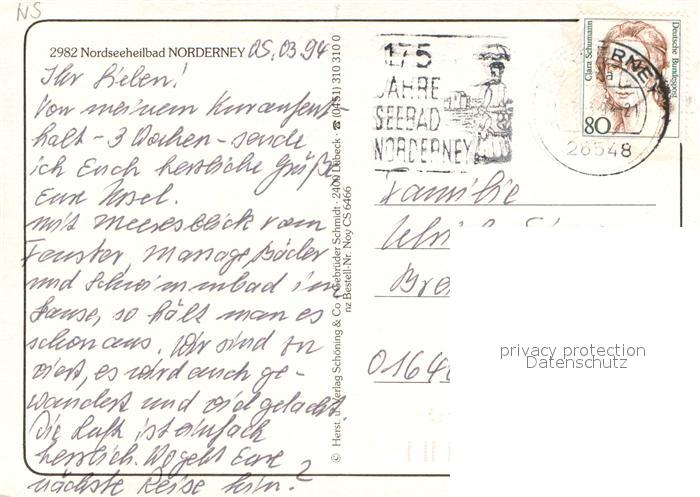 NS
2982 Nordseeheilbad NORDERNEY 05.03.94
Ihr Lieben!
Von meinem Kuraufent-
halt - 3 Wochen - sende
ich Euch herzliche Grüße
Eure Ursel.
mit Meeresblick vom
Fenster, Massage, Bäder
und Schwimmbad im
Hause, so hält man es
schon aus. Wir sind zu
viert, es wird auch ge-
wandert und viel gelacht.
Die Luft ist einfach
herrlich. Wo geht Eure
nächste Reise hin?
© Herst. u. Verlag Schöning & Co + Gebrüder Schmidt · 2400 Lübeck · ☎ (0451) 310 310 0
nz Bestell-Nr. Noy CS 6466
175
JAHRE
SEEBAD
NORDERNEY
26548
Clara Schumann
Deutsche Bundespost
80
Familie
Bre
0164
privacy protection
Datenschutz